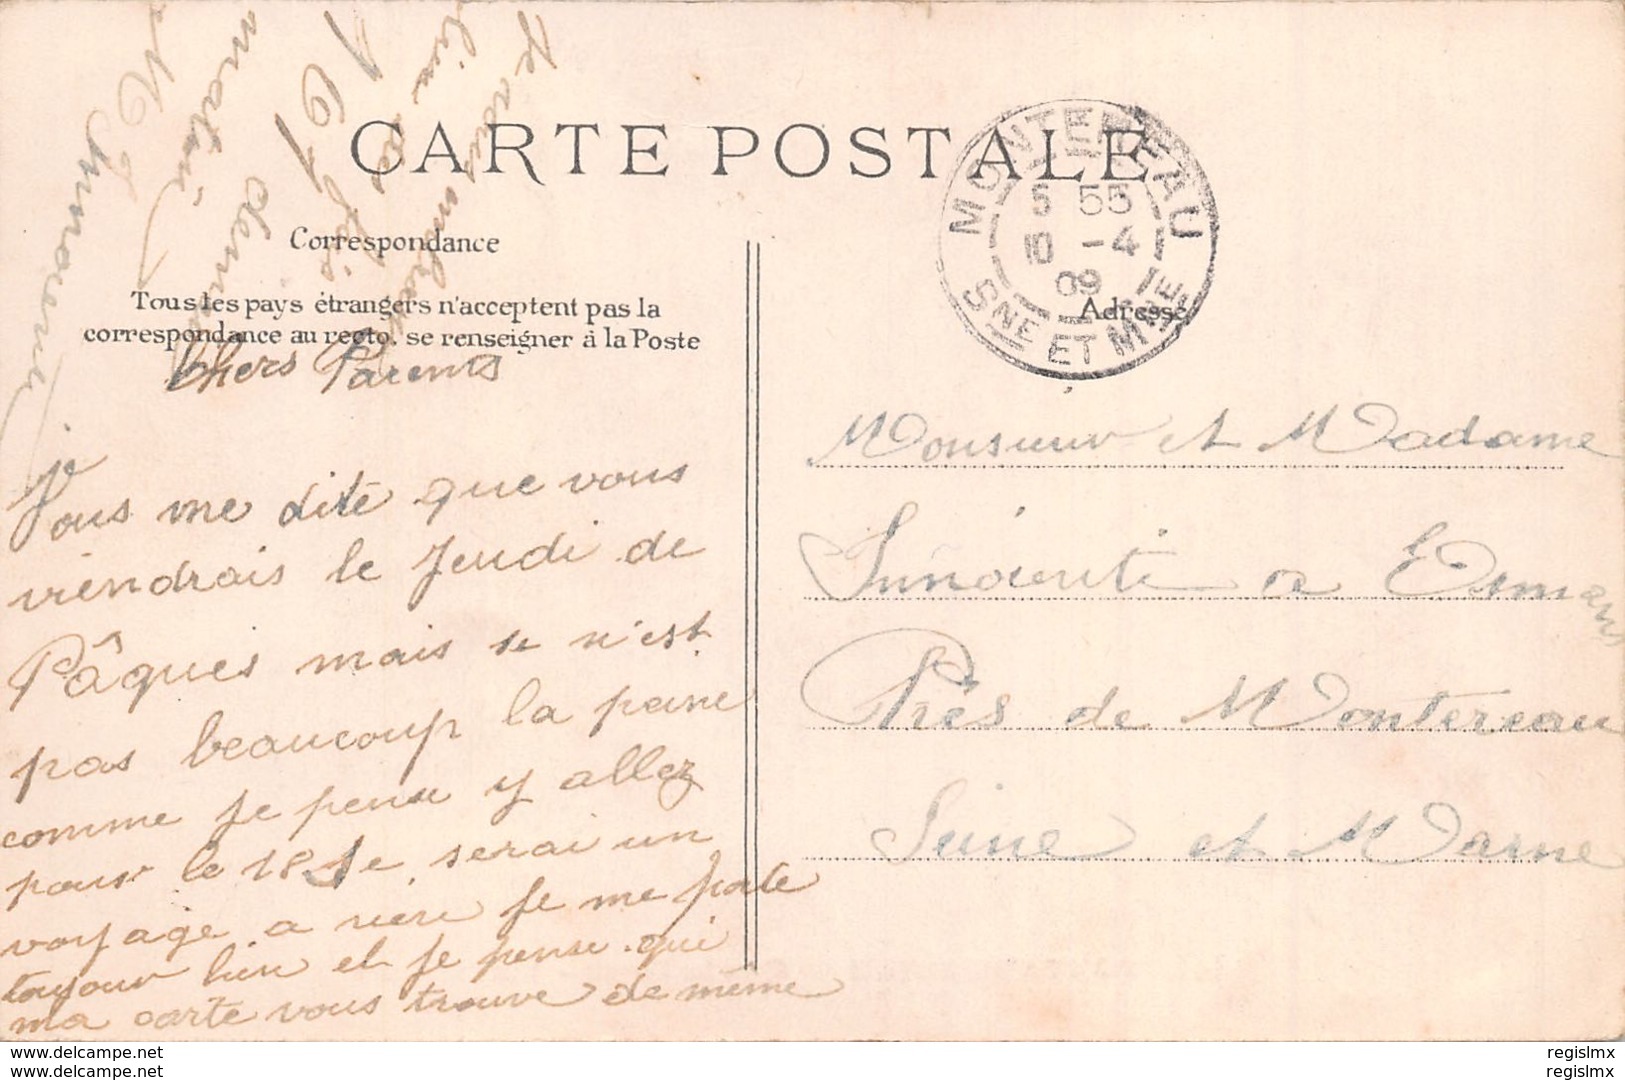 CARTE POSTALE
Correspondance
Tous les pays étrangers n'acceptent pas la
correspondance au recto. se renseigner à la Poste
MONTEREAU
5 55
10 -4
09
SNE ET MNE
Adresse
Chers Parents
Vous me dite que vous
viendrais le Jeudi de
Pâques mais se n'est
pas beaucoup la peine
comme je pense y allez
pour le 18 Se serai un
voyage a rien Je me porte
toujour bien et je pense qui
ma carte vous trouve de même
Je vous embrasse
bien des fois
matin
Monsieur et Madame
Innocenti a Esmans
Près de Montereau
Seine et Marne
www.delcampe.net
www.delcampe.net
regislmx
regislmx